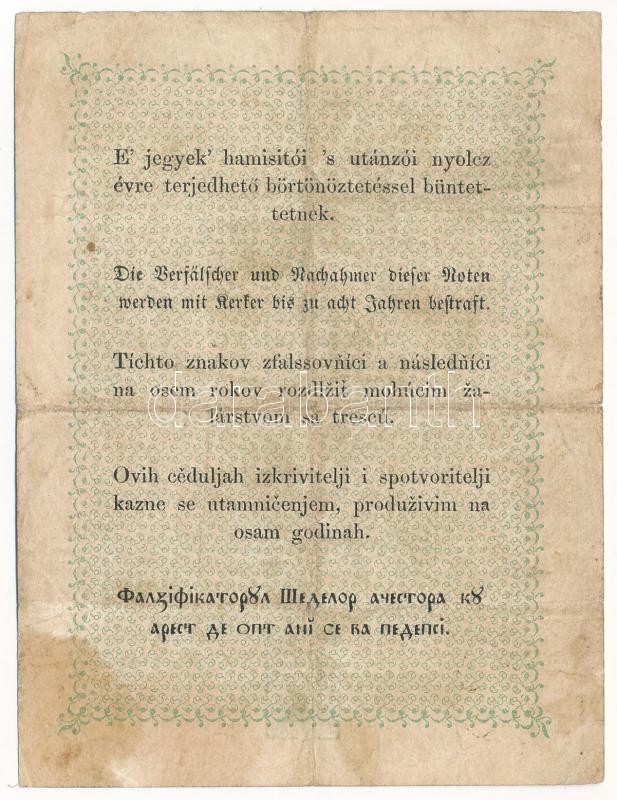 E' jegyek' hamisitói 's utánzói nyolcz
évre terjedhető börtönöztetéssel büntet-
tetnek.
Die Verfälscher und Nachahmer dieser Noten
werden mit Kerker bis zu acht Jahren bestraft.
Tíchto znakov zfalssovňíci a následňíci
na osem rokov rozdlžiť mohúcim ža-
lárstvom sa trescú.
Ovih cĕduljah izkrivitelji i spotvoritelji
kazne se utamničenjem, produživim na
osam godinah.
Фалꙁіфікаторꙋл Шеделор ачестора кꙋ
арест де опт анĭ се ва педепсі.
darabanth